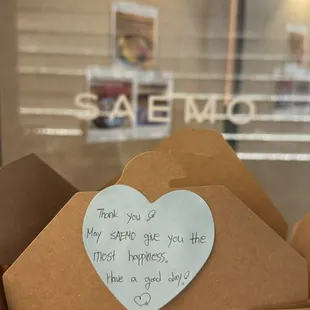 SAEMO
SAEMO
Thank you
May SAEMO give you the
most happiness.
Have a good day!